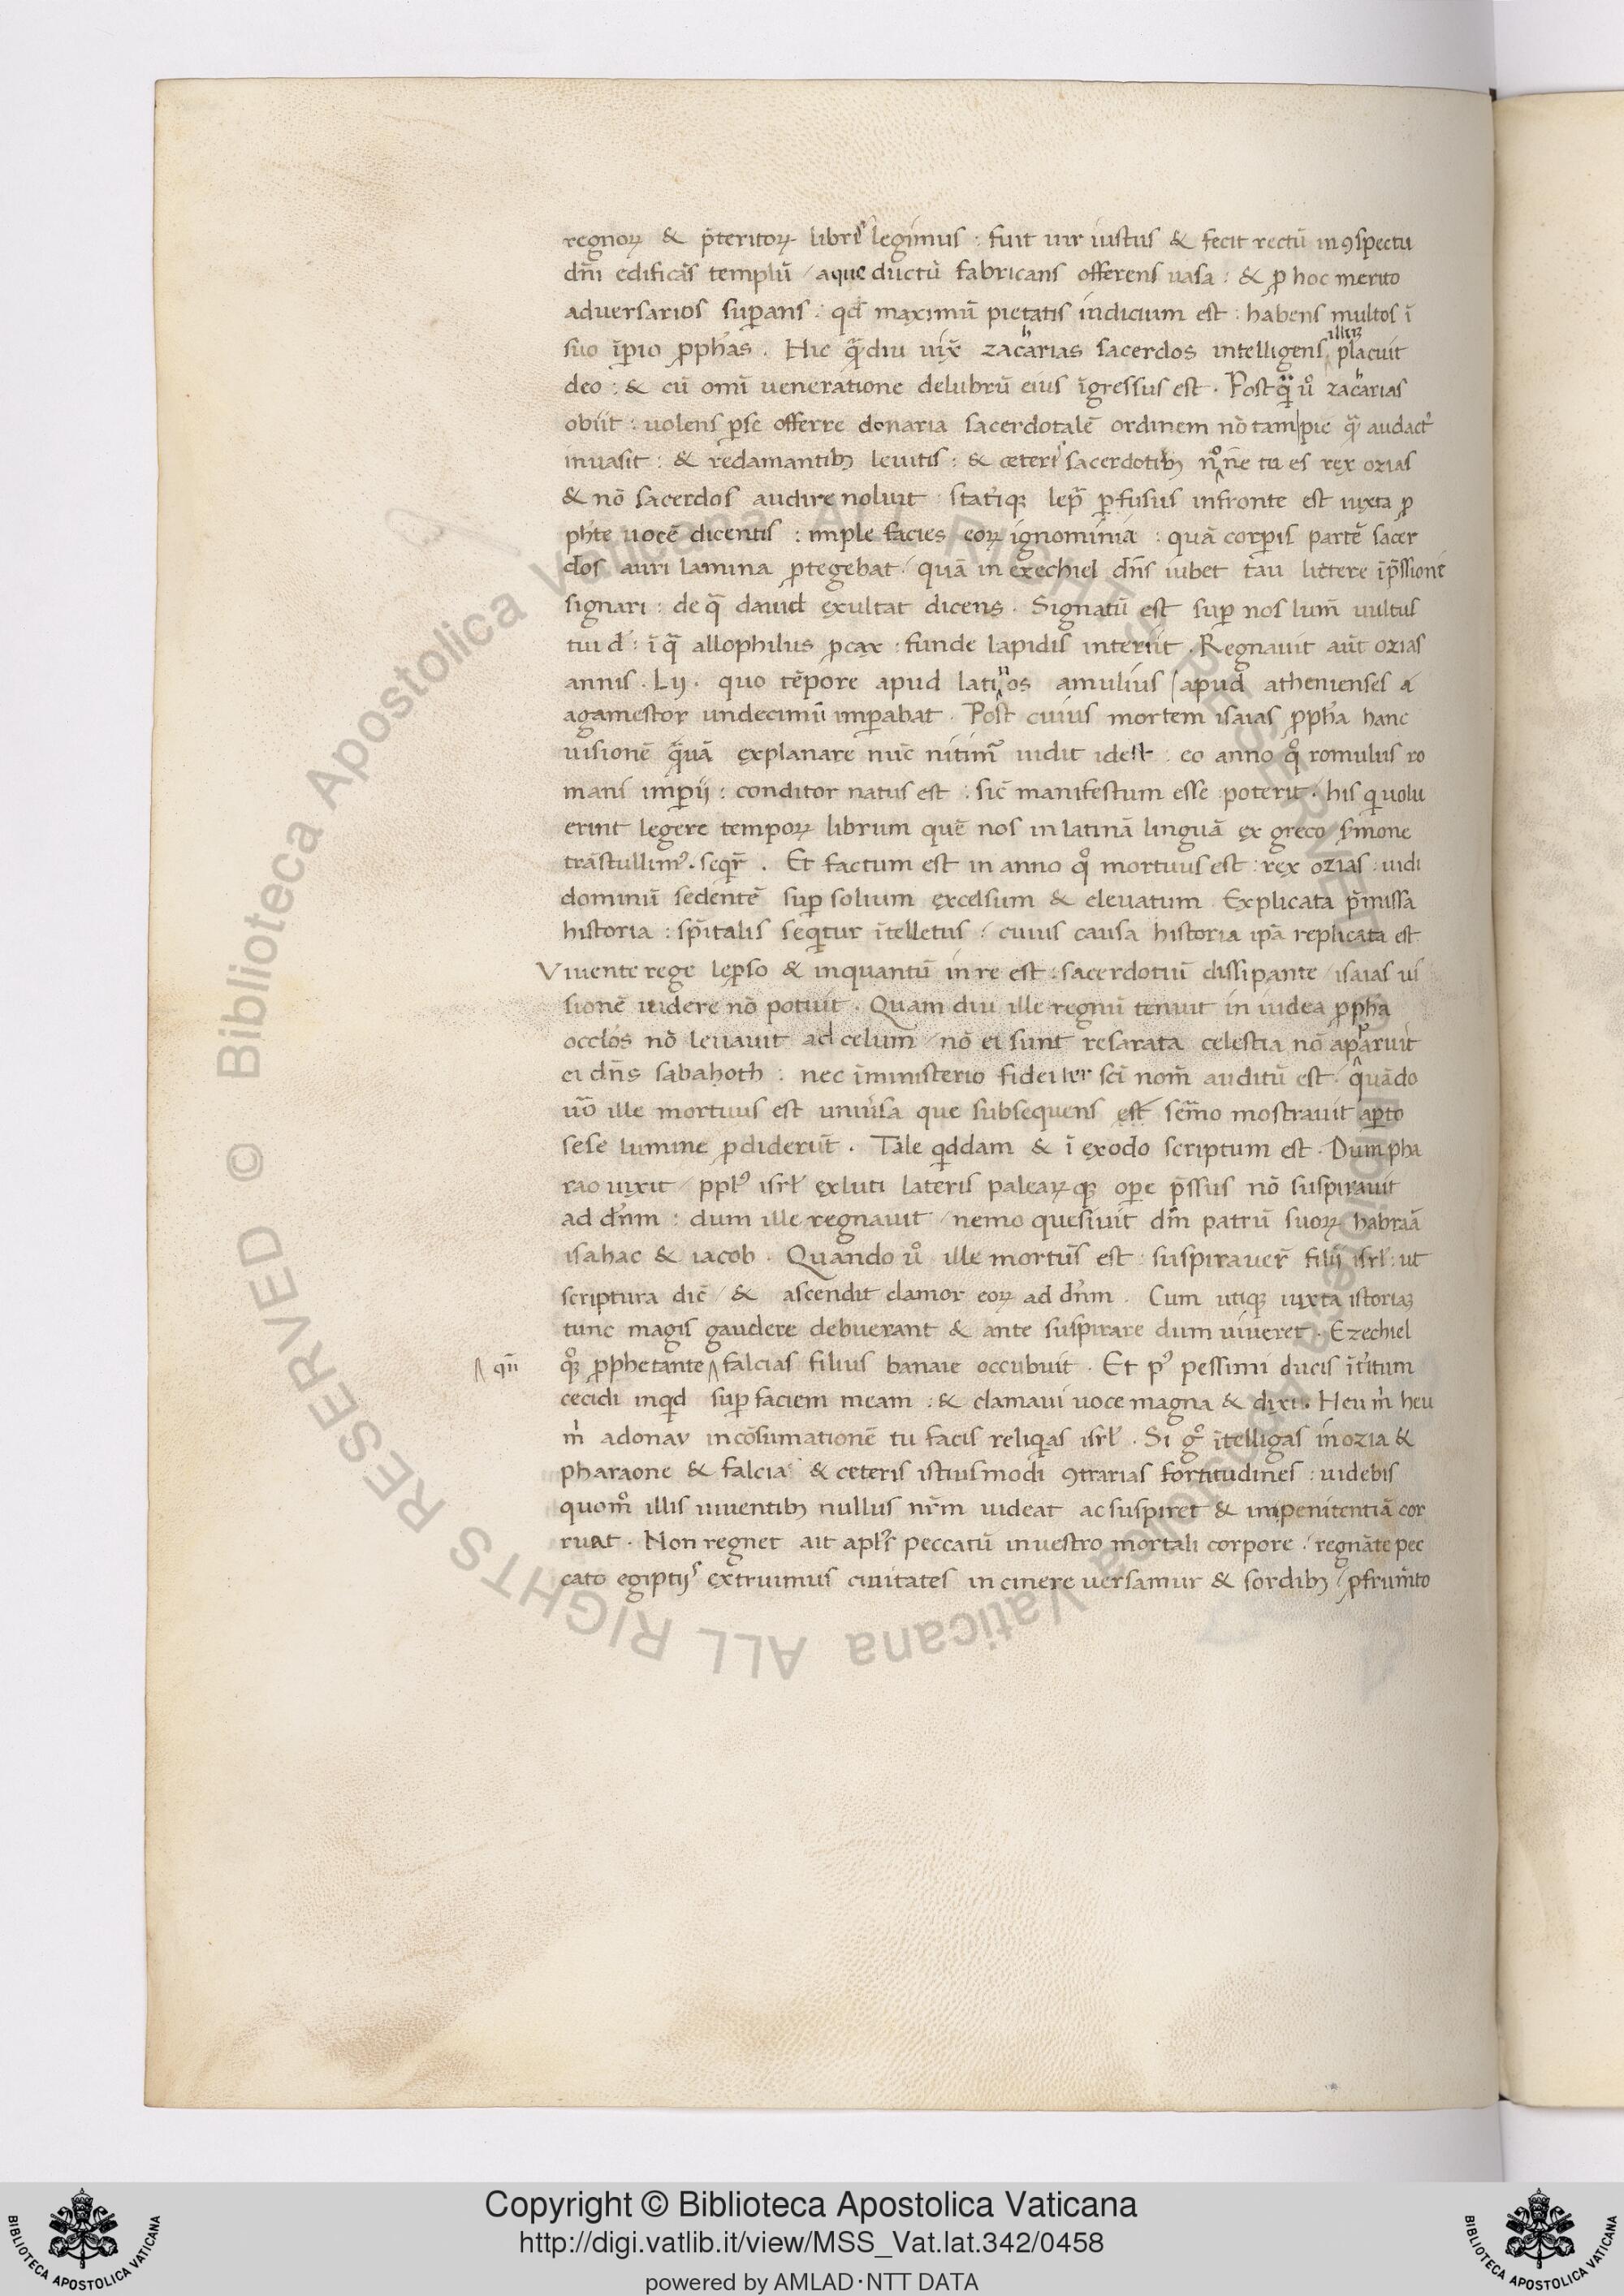 regnoꝝ & p̄teritoꝝ libris legimus : fuit uir iustus & fecit rectū in ꝯspectu
dn̄i edificās templū / aque ductū fabricans offerens uasa : & ꝑ hoc merito
adversarios suꝑans : qd̄ maximū pietatis indicium est : habens multos ī
suo īꝑio ꝓphās . Hic q̄diu uix̄ zacharias sacerdos intelligens illiꝰ placuit
deo : & cū omī veneratione delubrū eius īgressus est . Postq̄ uͦ zacharias
obiit : uolens ꝑse offerre donaria sacerdotalē ordinem nō tam pie q̄ audact̓
inuasit : & redamantibꝫ leuitis : & ceteris sacerdotibꝫ nōne tu es rex ozias
& nō sacerdos audire noluit : statīqꝫ lepͣ ꝑfusus infronte est iuxta ꝓ
phēte uocē dicentis : imple facies eoꝝ ignominia : quā corꝑis partē sacer
dos auri lamina ꝓtegebat / quā in ezechiel dn̄s iubet tau littere īp̄ssione
signari : de qͣ dauid exultat dicens . Signatū est suꝑ nos lum̄ uultus
tui d̄ : ī qͣ allophilus ꝓcax : funde lapidis interiit . Regnauit aūt ozias
annis . Lij . quo tēpore apud latinos amulius / apud athenienses a
agamestor undecimū imꝑabat . Post cuius mortem isaias ꝓphā hanc
uisionē quā explanare nūc nitimͬ uidit idest : eo anno qͦ romulus ro
mani imꝑij : conditor natus est : sic manifestum esse poterit . his qui uolu
erint legere tempoꝝ librum quē nos in latinā linguā ex greco s̓mone
trāstullimꝰ . seqr̄ . Et factum est in anno qͦ mortuus est : rex ozias : uidi
dominū sedentē suꝑ solium excelsum & eleuatum . Explicata p̄missa
historia : sp̄italis seqitur ītelletus / cuius causa historia ip̄a replicata est
Viuente rege leproso & inquantū in re est : sacerdotiū dissipante / isaias ui
sionē uidere nō potuit . Quam diu ille regnū tenuit in iudea ꝓphā
occlos nō leuauit ad celum / nō ei sunt resarata celestia nō aparuit
ei dn̄s sabahoth : nec īministerio fidei ter sc̄i nom̄ auditū est . quādo
uō ille mortuus est uniūsa que subsequens est sem̄o mostrauit aꝑto
sese lumine ꝓdiderūt . Tale qddam & ī exodo scriptum est . Dum pha
rao uixit / pplꝰ isrl̄ exluti lateris paleaꝝqꝫ oꝑe p̄ssus nō suspirauit
ad dn̄m : dum ille regnauit / nemo quesiuit dm̄ patrū suoꝝ habraā
isahac & iacob . Quando uͦ ille mortūs est : suspirauer̄ filij isrl̄ : ut
scriptura dic̄ / & ascendit clamor eoꝝ ad dn̄m . Cum utiqꝫ iuxta istoriaꝫ
tunc magis gaudere debuerant & ante suspirare dum uiueret . Ezechiel
qn̄
qͦqꝫ ꝓphetante falcias filius banaie occubuit . Et pꝰ pessimi ducis īt̓itum
cecidi inqd suꝑ faciem meam : & clamaui uoce magna & dixi . Heu m̓ heu
m̓ adonay incōsumationē tu facis reliqias isrl̄ . Si gͦ ītelligas in ozia &
pharaone & falcia & ceteris istiusmodi ꝯtrarias fortitudines : uidebis
quomͦ illis uiuentibꝫ nullus nr̄m uideat ac suspiret & inpenitentiā cor
ruat . Non regnet ait apl̄s peccatū in uestro mortali corpore / regnāte pec
cato egiptijs extruimus ciuitates in cinere uersamur & sordibꝫ / ꝓfrum̄to
Copyright © Biblioteca Apostolica Vaticana
http://digi.vatlib.it/view/MSS_Vat.lat.342/0458
powered by AMLAD·NTT DATA
BIBLIOTECA APOSTOLICA VATICANA
BIBLIOTECA APOSTOLICA VATICANA
© Biblioteca Apostolica Vaticana ALL RIGHTS RESERVED
© Biblioteca Apostolica Vaticana ALL RIGHTS RESERVED